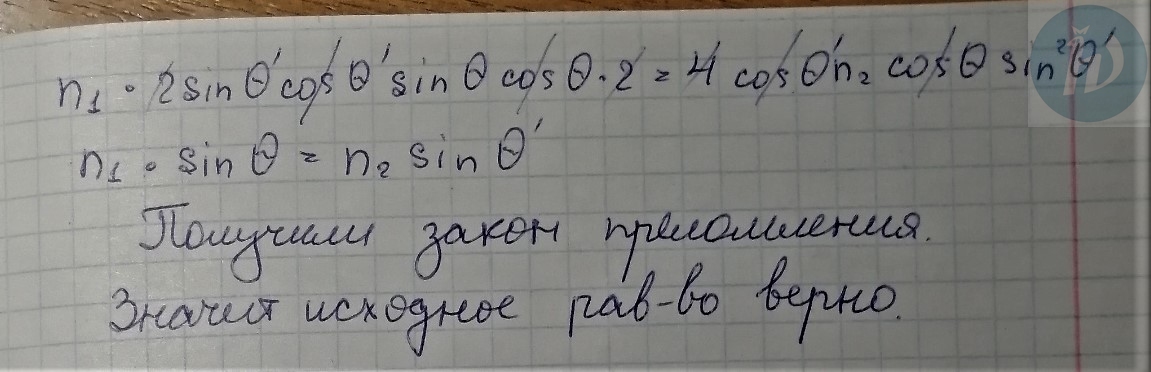 n₁ · 2 sin θ' cos θ' sin θ cos θ · 2 = 4 cos θ' n₂ cos θ sin² θ'
n₁ · sin θ = n₂ sin θ'
Получили закон преломления.
Значит исходное рав-во верно.